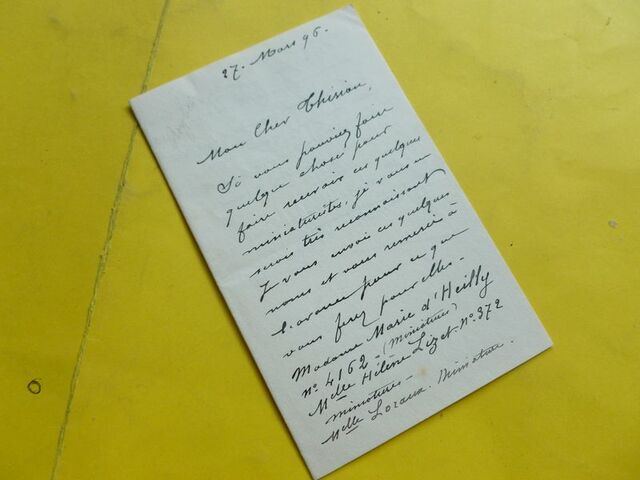 27. Mars 96.
Mon Cher Thirion,
Si vous pouviez faire
quelque chose pour
faire recevoir ces quelques
miniaturistes, je vous en
serais très reconnaissant
J vous envoi ces quelques
noms et vous remercie à
l'avance pour ce que
vous ferez pour elles -
Madame Marie d'Heilly
n° 4162 - (Miniatures)
Melle Hélène Lizet. n° 372
miniatures -
Melle Loraux. Miniature.